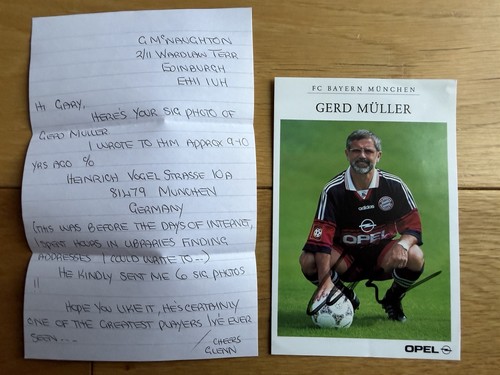 G McNAUGHTON
2/11 WARDLAW TERR
EDINBURGH
EH11 1UH
HI GARY,
HERE'S YOUR SIG PHOTO OF
GERD MULLER.
I WROTE TO HIM APPROX 9-10
YRS AGO %
HEINRICH VOGEL STRASSE 10A
81479 MUNCHEN
GERMANY
(THIS WAS BEFORE THE DAYS OF INTERNET,
I SPENT HOURS IN LIBRARIES FINDING
ADDRESSES I COULD WRITE TO --)
HE KINDLY SENT ME 6 SIG PHOTOS
!!
HOPE YOU LIKE IT, HE'S CERTAINLY
ONE OF THE GREATEST PLAYERS I'VE EVER
SEEN...
CHEERS
GLENN
FC BAYERN MÜNCHEN
GERD MÜLLER
adidas
OPEL
OPEL